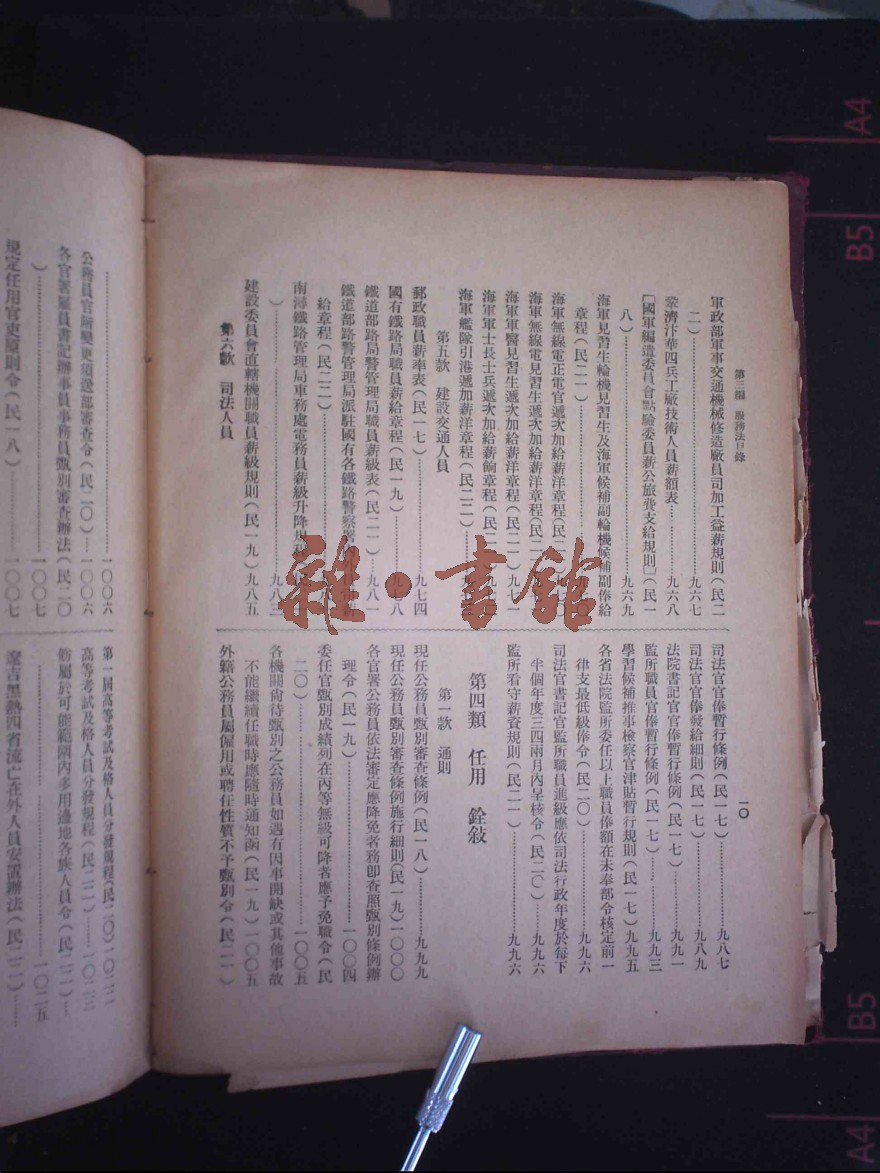 第三編 服務法目錄
一〇
軍政部軍事交通機械修造廠員司加工益薪規則(民二
二)……九六七
鞏濟汴華四兵工廠技術人員薪額表……九六八
〔國軍編遣委員會點驗委員薪公旅費支給規則〕(民一
八)……九六九
海軍見習生輪機見習生及海軍候補副輪機候補副俸給
章程(民二一)……
海軍無線電正電官遞次加給薪洋章程(民二
海軍無線電見習生遞次加給薪洋章程(民二
海軍軍醫見習生遞次加給薪洋章程(民二一)九七一
海軍軍士長士兵遞次加給薪餉章程(民二
海軍艦隊引港遞加薪洋章程(民二二)……
第五款 建設交通人員
郵政職員薪率表(民一七)……九七四
國有鐵路局職員薪給章程(民一九)……九七八
鐵道部路局警管理局職員薪級表(民二一)…九八一
鐵道部路警管理局派駐國有各鐵路警察署
給章程(民二二)……
南潯鐵路管理局車務處電務員薪級升降規
)……九八三
建設委員會直轄機關職員薪級規則(民一九)九八五
第六款 司法人員
司法官官俸暫行條例(民一七)……九八七
司法官官俸發給細則(民一七)……九八九
法院書記官官俸暫行條例(民一七)……九九一
監所職員官俸暫行條例(民一七)……九九三
學習候補推事檢察官津貼暫行規則(民一七)九九五
各省法院監所委任以上職員俸額在未奉部令核定前一
律支最低級俸令(民二〇)……九九六
司法官書記官監所職員進級應依司法行政年度於每下
半個年度三四兩月內呈核令(民二〇)……九九六
監所看守薪資規則(民二一)……九九六
第四類 任用 銓敍
第一款 通則
現任公務員甄別審查條例(民一八)……九九九
現任公務員甄別審查條例施行細則(民一九)一〇〇〇
各官署公務員依法審定應降免者務卽查照甄別條例辦
理令(民一九)……一〇〇四
委任官甄別成績列在丙等無級可降者應予免職令(民
二〇)……一〇〇五
各機關尚待甄別之公務員如遇有因事開缺或其他事故
不能繼續任職時應隨時通知函(民一九)一〇〇五
外籍公務員屬僱用或聘任性質不予甄別令(民二一)
……一〇〇六
公務員官階變更須送部審查令(民二〇)…一〇〇六
各官署雇員書記辦事員事務員甄別審查辦法(民二〇
)……一〇〇七
規定任用官吏履則令(民一八)……一〇〇七
第一屆高等考試及格人員分發規程(民二〇)一〇二二
高等考試及格人員分發規程(民二二)…一〇二三
飭屬於可能範圍內多用邊地各族人員令(民二二)…
……一〇二五
遼吉黑熱四省流亡在外人員安置辦法(民二二)……
雜·書館
A4
B5
B5
A4